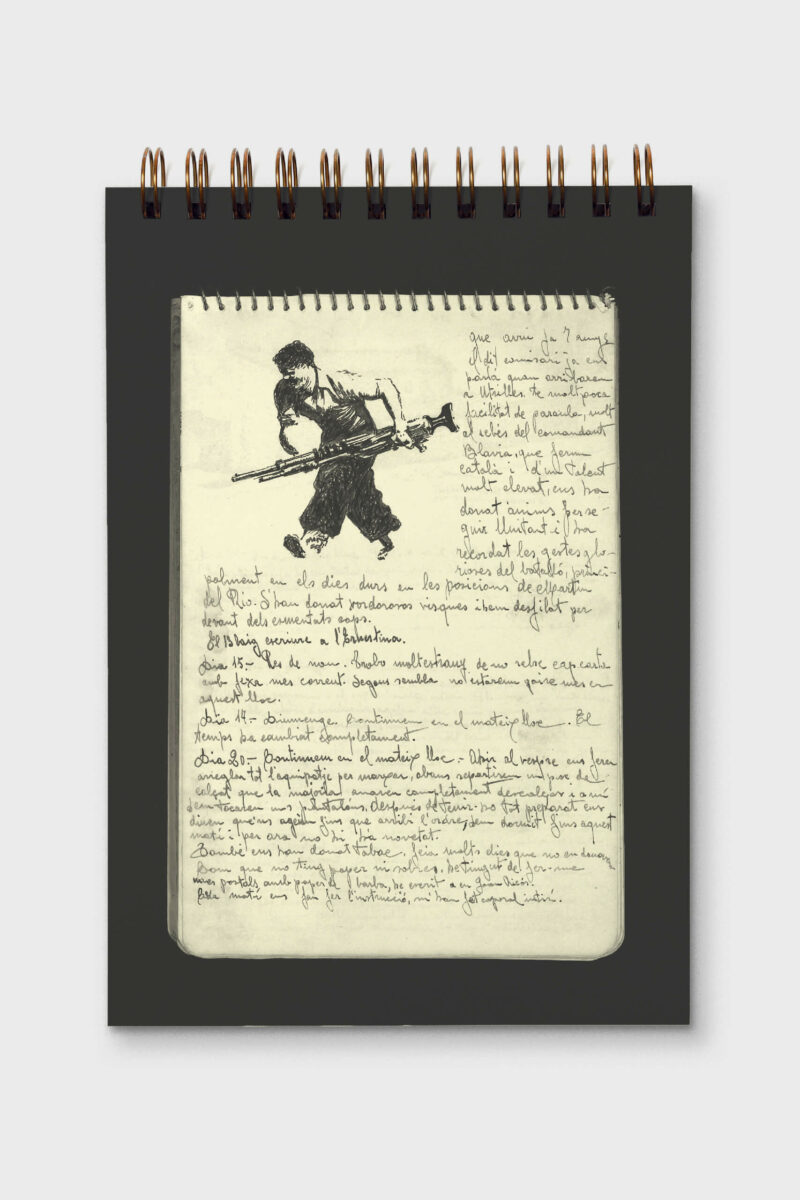 que avui fa 7 anys
El dit comisari ja ens
parlà quan arribarem
a Utrilles. Te molt poca
facilitat de paraula, molt
al rebés del comandant
Blavia, que ferm
català i d'un talent
molt elevat, ens ha
donat ànims per se-
guir lluitant i ha
recordat les gestes glo-
rioses del batalló, princi-
palment en els dies durs en les posicions de Martin
del Rio. S'han donat sordorosos visques i hem desfilat per
devant dels esmentats caps.
El Blaig escriure a l'Ernestina.
Dia 15.- Res de nou. Trobo molt estrany de no rebre cap carta
amb fexa mes corrent. Segons sembla no estarem gaire mes en
aquest lloc.
Dia 17.- Diumenge. Continuem en el mateix lloc. El
temps ha cambiat completament.
Dia 20.- Continuem en el mateix lloc.- Ahir al vespre ens feren
arreglar tot l'equipatge per marxar, abans repartiren un poc de
calçat que la majoria anaven completament descalços i a mi
em tocaren uns pantalons. Després de tenir-ho tot preparat ens
diuen que'ns agem fins que arribi l'ordre, hem dormit fins aquest
matí i per ara no hi ha novetat.
També ens han donat tabac, feia molts dies que no en donaven
Com que no tinc paper ni sobres, he tingut de fer-me
unes postals amb paper de barba, he escrit a en Joan
Este matí ens fan fer l'instrucció, m'han fet caporal